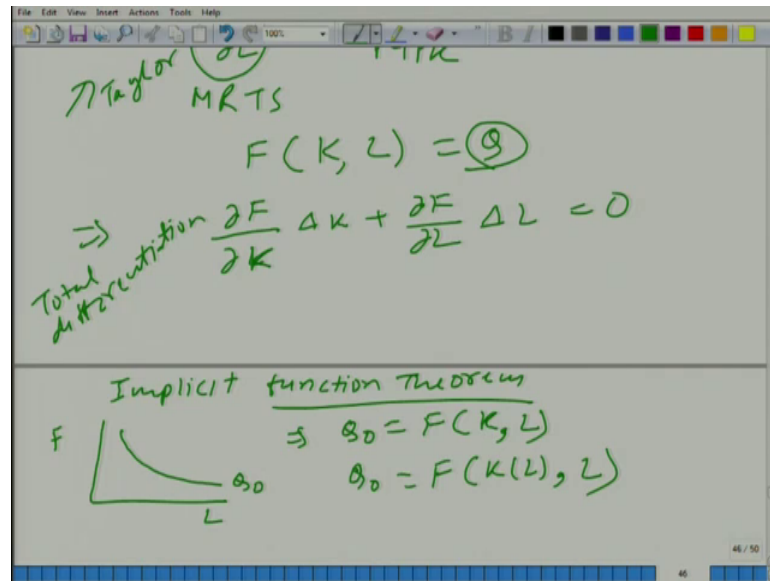 File Edit View Insert Actions Tools Help
100%
Taylor ∂L
MRTS
F(K, L) = Q
⇒ ∂F/∂K ΔK + ∂F/∂L ΔL = 0
Total differentiation
Implicit function Theorem
⇒ Q0 = F(K, L)
Q0 = F(K(L), L)
F
Q0
L
46 / 50
46